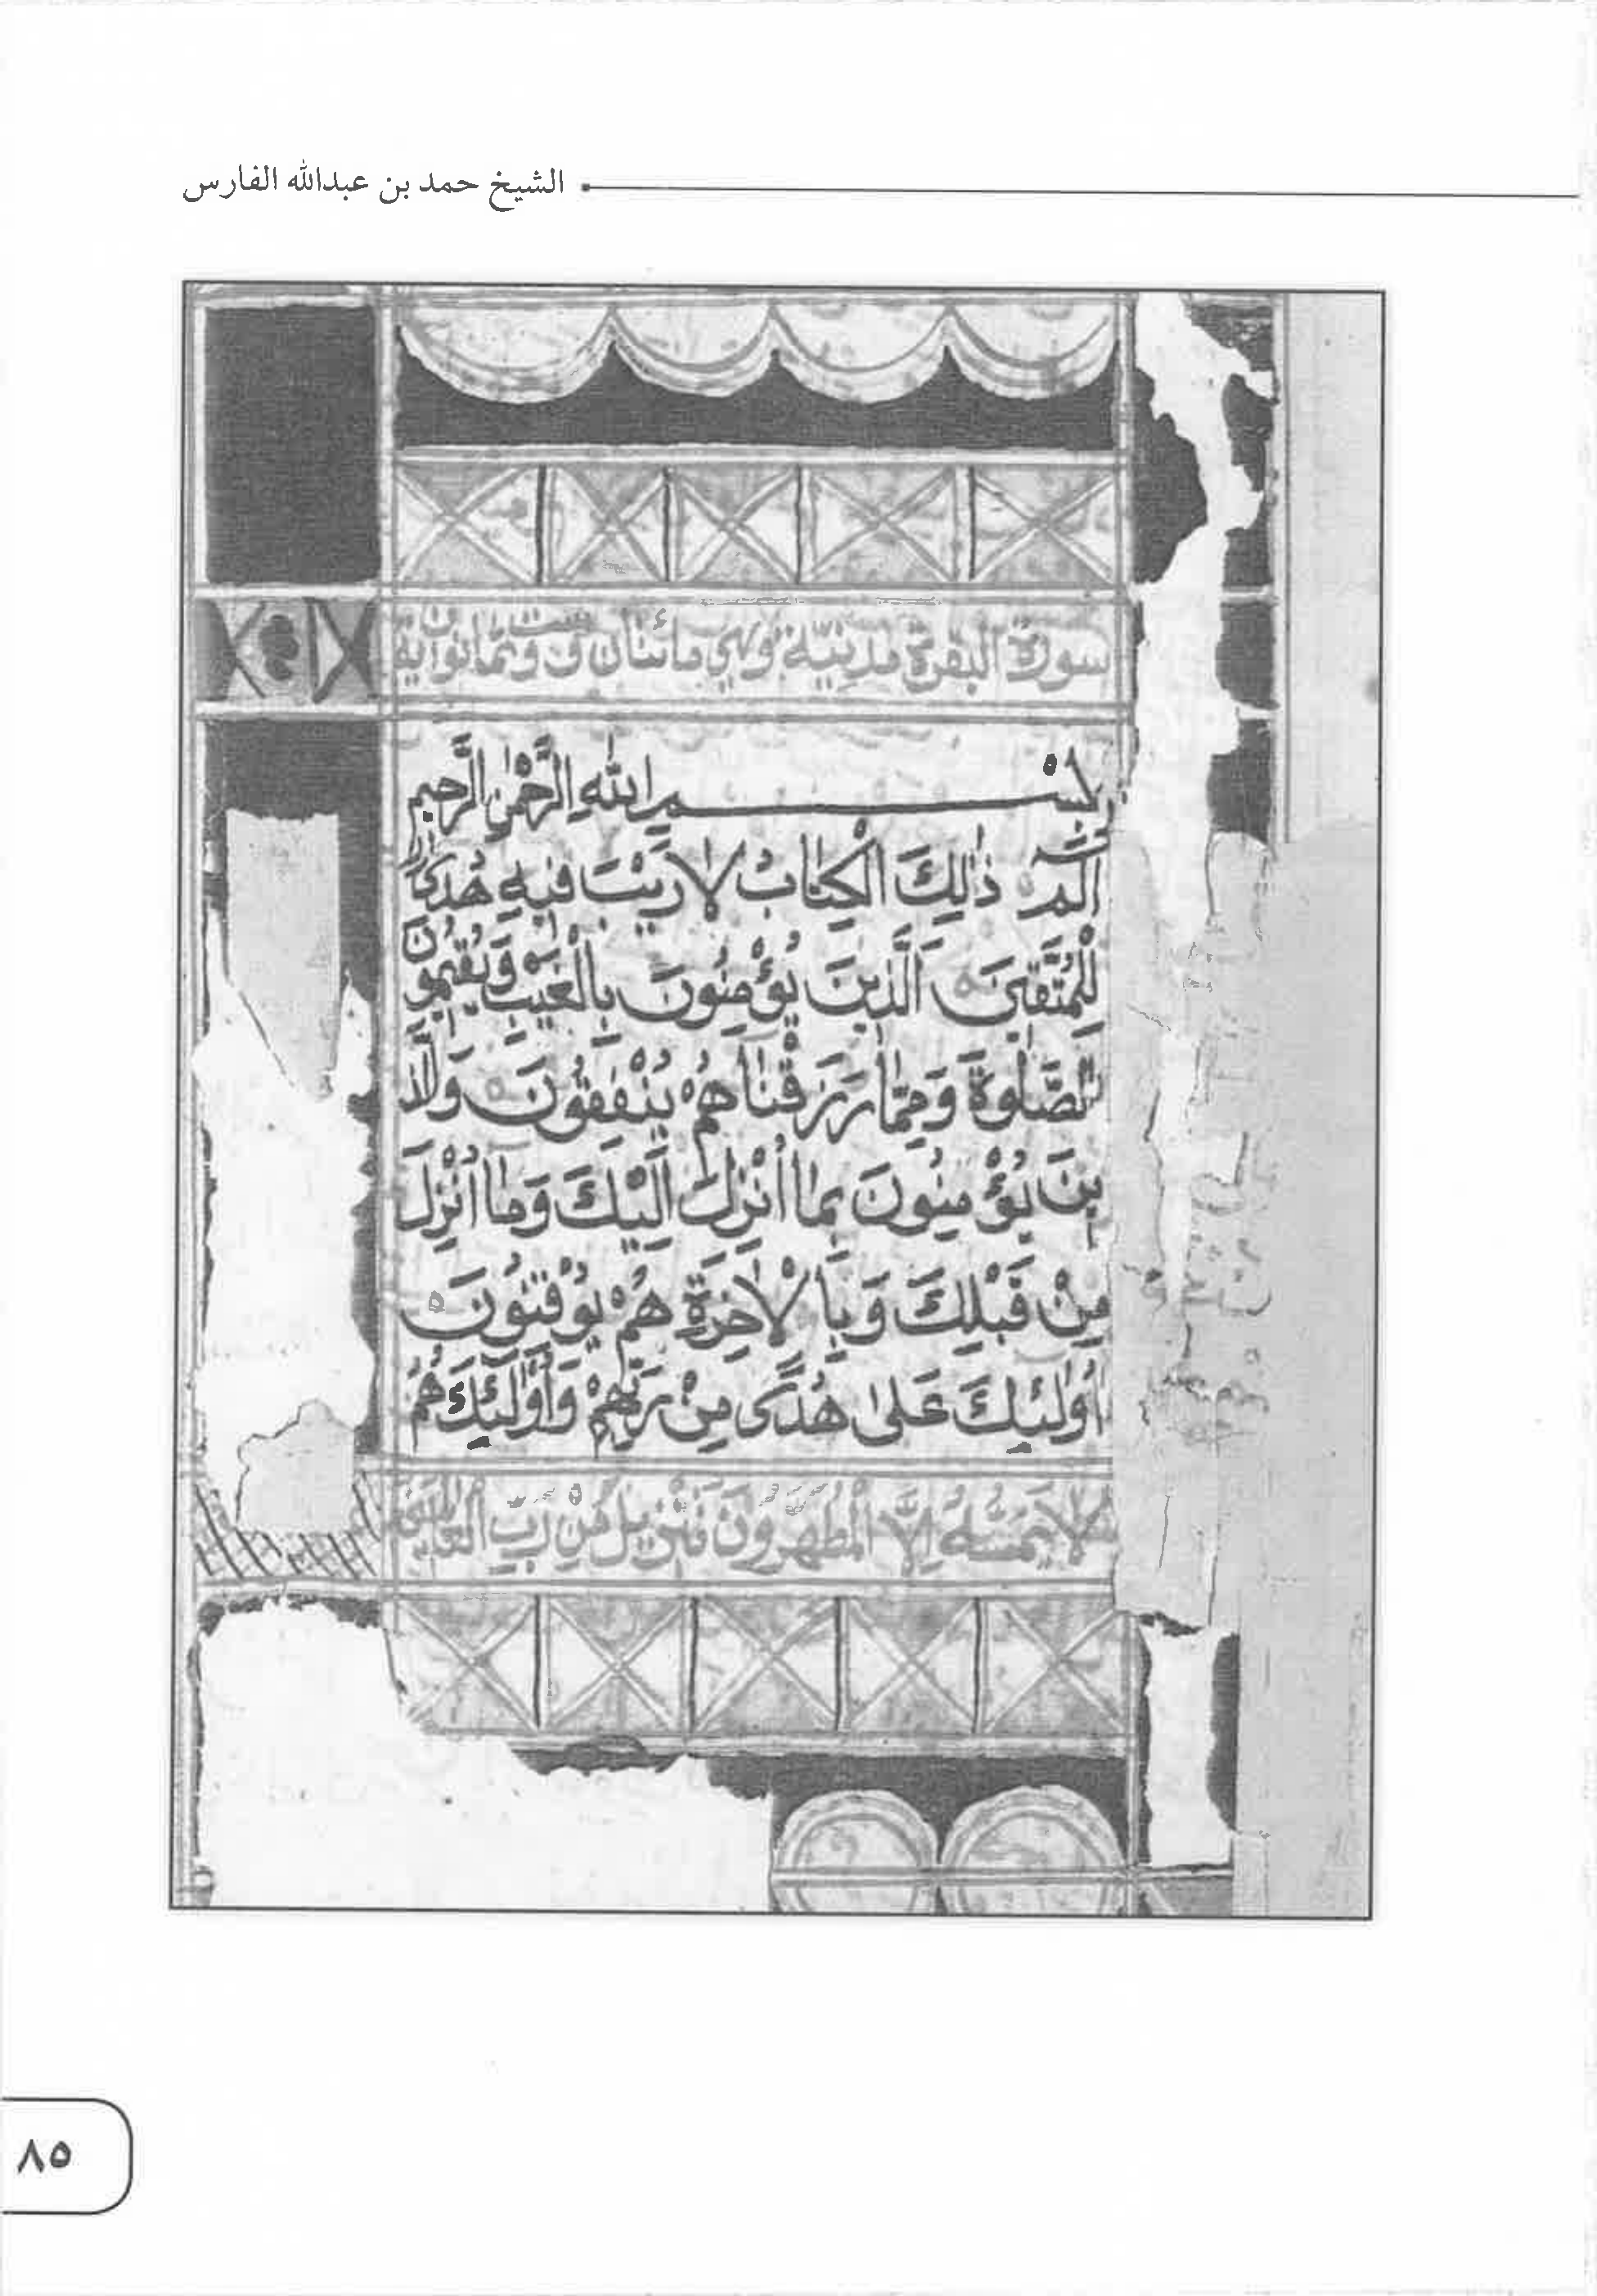 الشيخ حمد بن عبدالله الفارس
سورة البقرة مدنية وهي مائتان وست وثمانون آية
بسم الله الرحمن الرحيم
الٓمٓ ذٰلِكَ الْكِتَابُ لَا رَيْبَ فِيهِ هُدًى
لِلْمُتَّقِينَ الَّذِينَ يُؤْمِنُونَ بِالْغَيْبِ وَيُقِيمُونَ
الصَّلٰوةَ وَمِمَّا رَزَقْنَاهُمْ يُنْفِقُونَ وَالَّذِ
ينَ يُؤْمِنُونَ بِمَا أُنْزِلَ إِلَيْكَ وَمَا أُنْزِلَ
مِنْ قَبْلِكَ وَبِالْاٰخِرَةِ هُمْ يُوقِنُونَ
أُولٰئِكَ عَلىٰ هُدًى مِنْ رَبِّهِمْ وَأُولٰئِكَ هُمُ
لَا يَمَسُّهُ إِلَّا الْمُطَهَّرُونَ تَنْزِيلٌ مِنْ رَبِّ الْعَالَمِينَ
٨٥